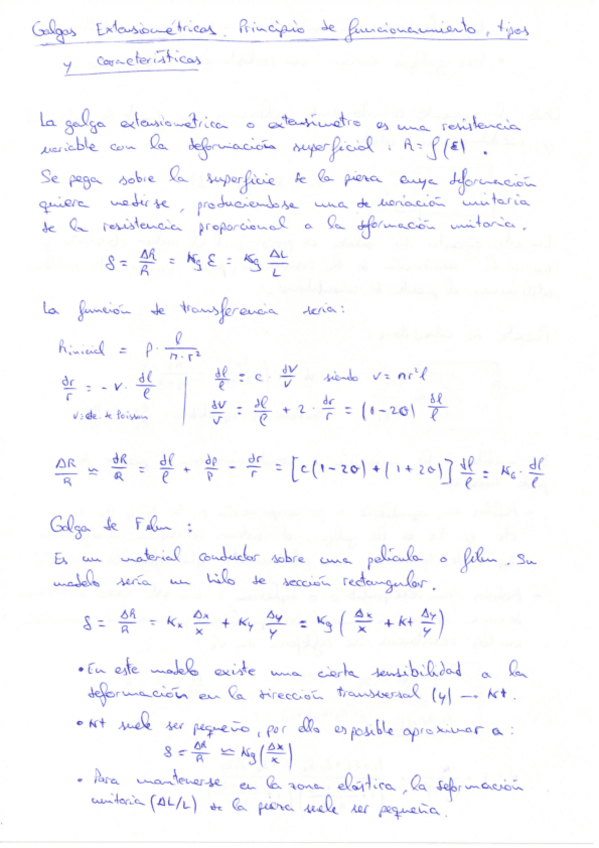 Galgas Extensiométricas. Principio de funcionamiento, tipos
y características
La galga extensiométrica o extensímetro es una resistencia
variable con la deformación superficial: R = f(ε).
Se pega sobre la superficie de la pieza cuya deformación
quiera medirse, produciéndose una de variación unitaria
de la resistencia proporcional a la deformación unitaria.
δ = ΔR/R = Kg ε = Kg ΔL/L
La función de transferencia sería:
Rinicial = ρ · l/(π·r²)
dr/r = -ν · dl/l
ν = cte. de Poisson
dρ/ρ = c · dV/V siendo v = πr²l
dV/V = dl/l + 2 · dr/r = (1-2θ) dl/l
ΔR/R ≃ dR/R = dl/l + dρ/ρ - dr/r = [c(1-2θ) + (1+2θ)] dl/l = KG · dl/l
Galga de Film:
Es un material conductor sobre una película o film. Su
modelo sería un hilo de sección rectangular.
δ = ΔR/R = Kx Δx/x + Ky Δy/y = Kg (Δx/x + Kt Δy/y)
• En este modelo existe una cierta sensibilidad a la
deformación en la dirección transversal (y) → Kt.
• Kt suele ser pequeño, por ello es posible aproximar a:
δ = ΔR/R ≃ Kg (Δx/x)
• Para mantenerse en la zona elástica, la deformación
unitaria (ΔL/L) de la pieza suele ser pequeña.